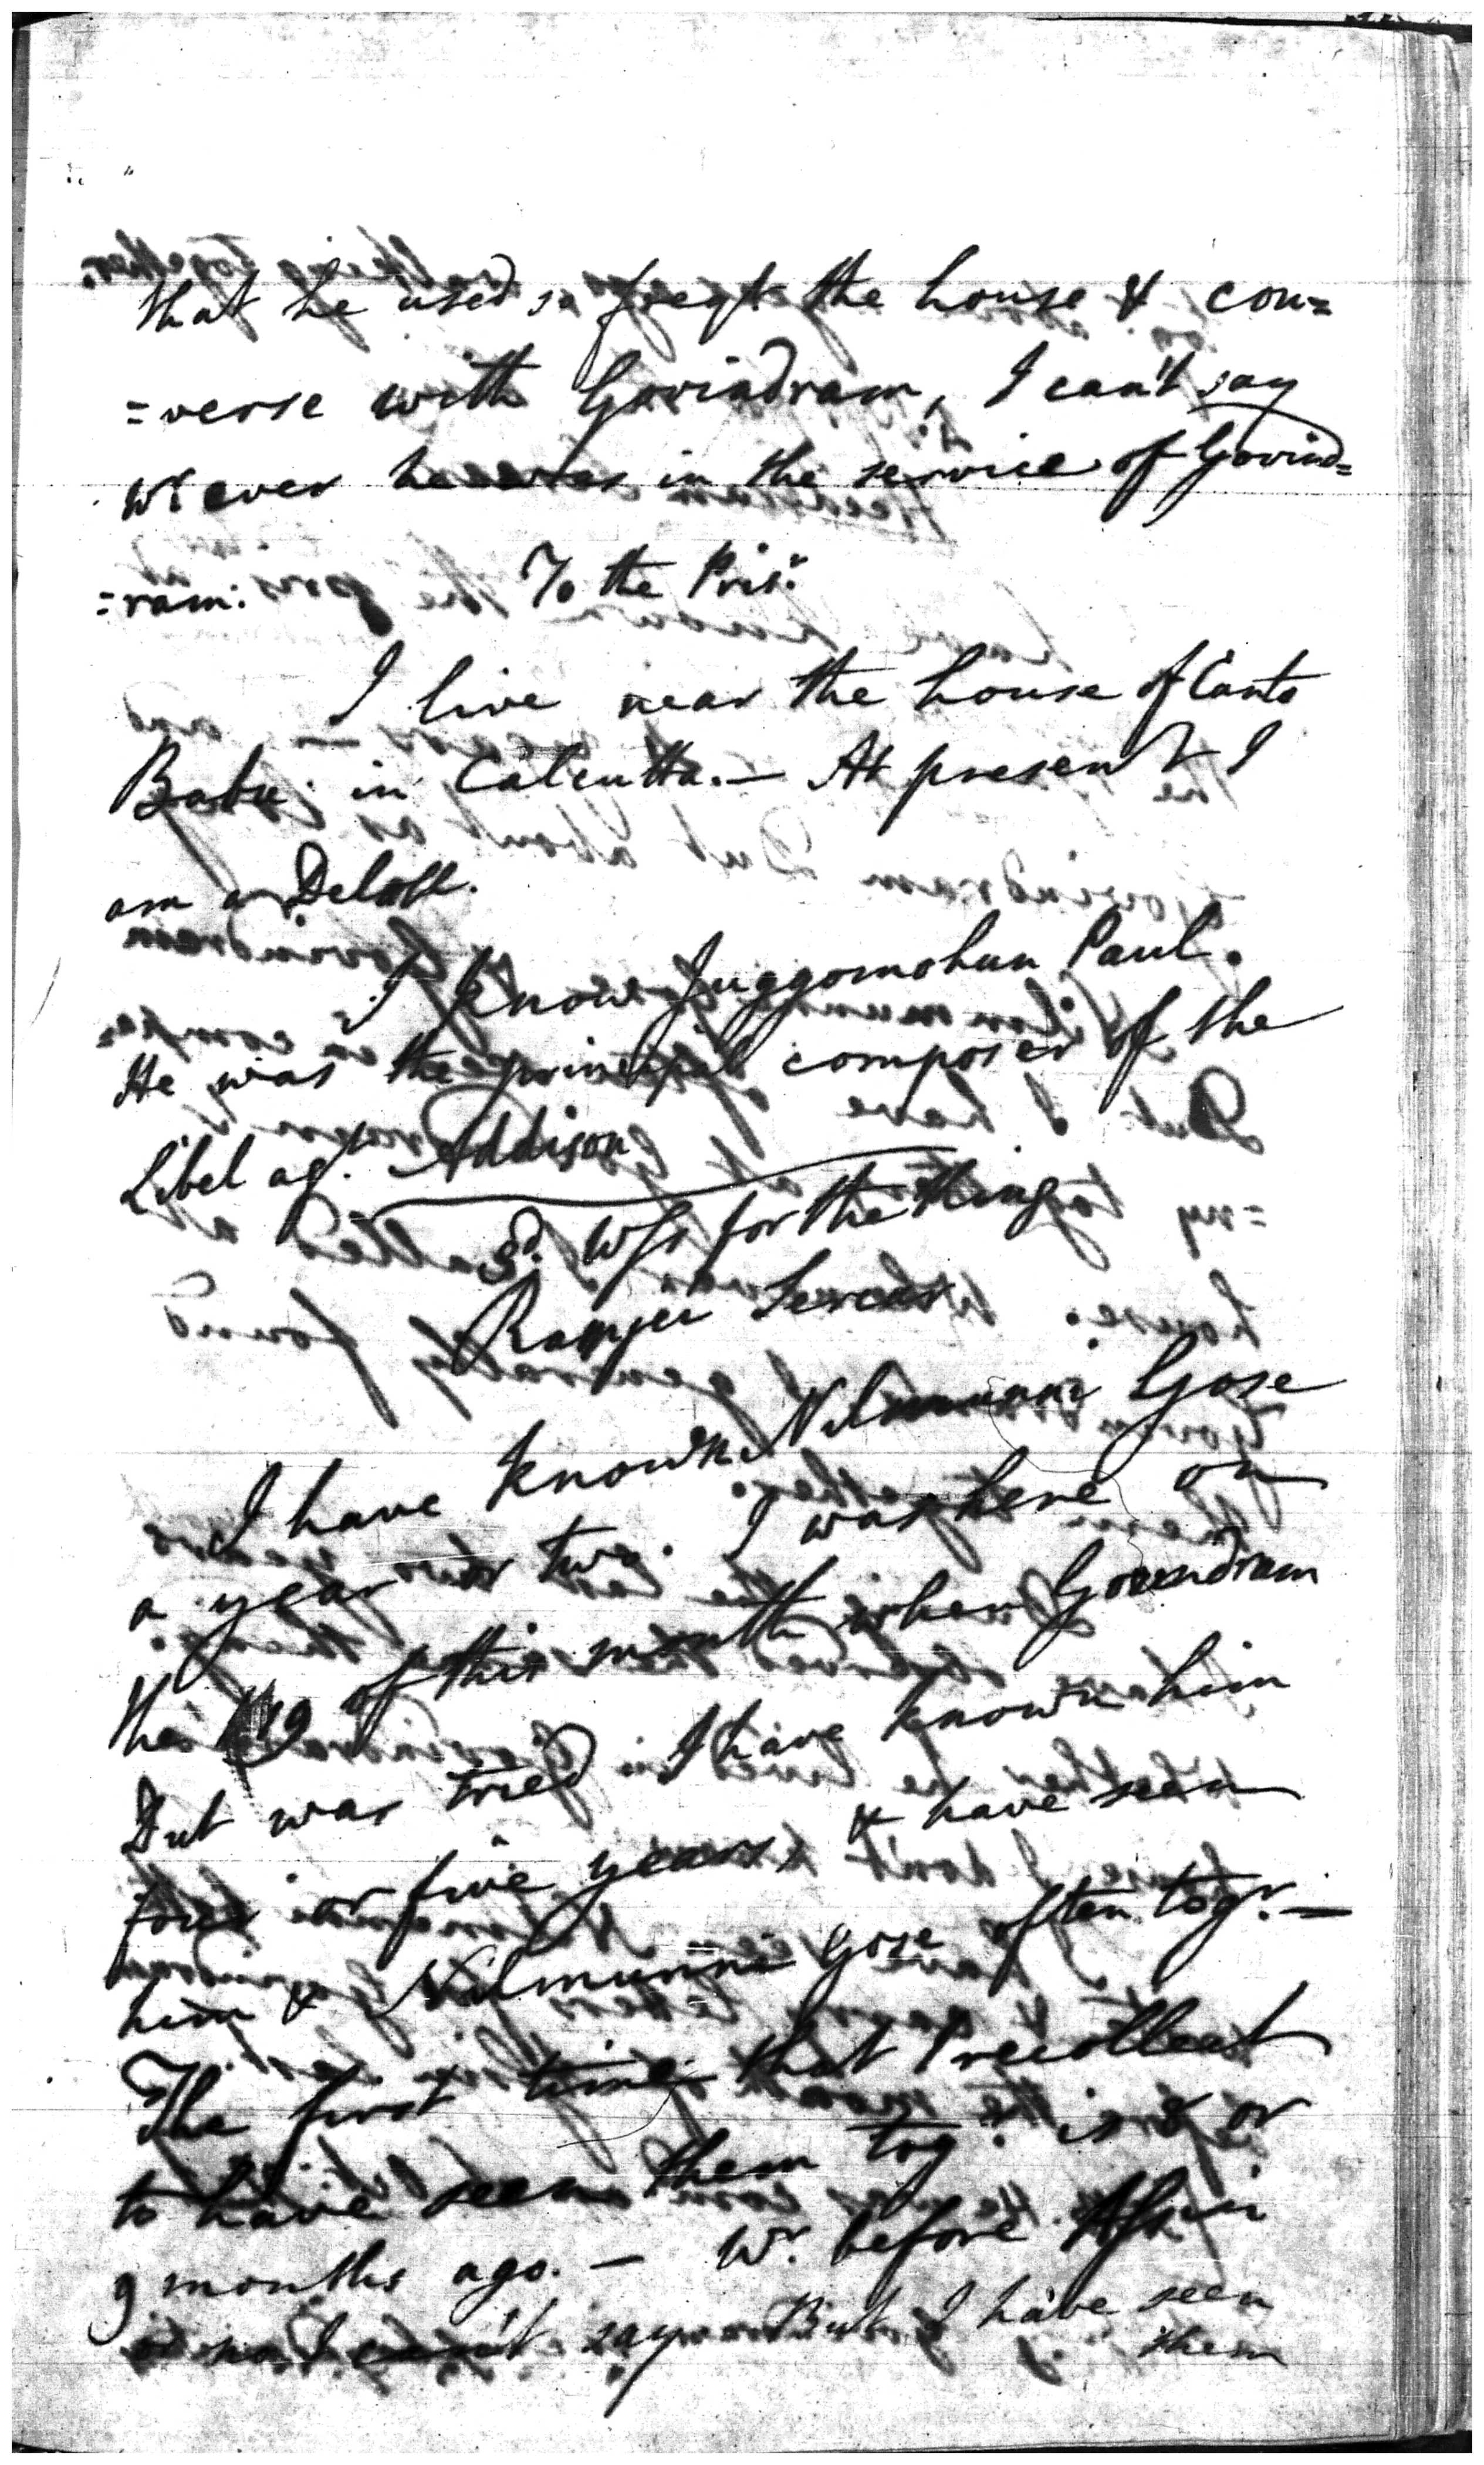 that he used to freqt the house & con=
=verse with Govindram, I can't say
wr ever he was in the service of Govind=
=ram. To the Prisr.
I live near the house of Canto
Babu in Calcutta.— At present I
am a Delall.
I know Juggomohun Paul.
He was the principal composer of the
Libel agt. Addison
3d. Wss for the King
Sercar
I have known Nilmunni Gose
a year or two. I was here on
the 19 of this month when Govindram
Dut was tried I have known him
four or five years, & have seen
him & Nilmunni Gose often togr.—
The first time that I recollect
to have seen them togr. is 8 or
9 months ago.— Wr. before
or no I can't say But I have seen
them